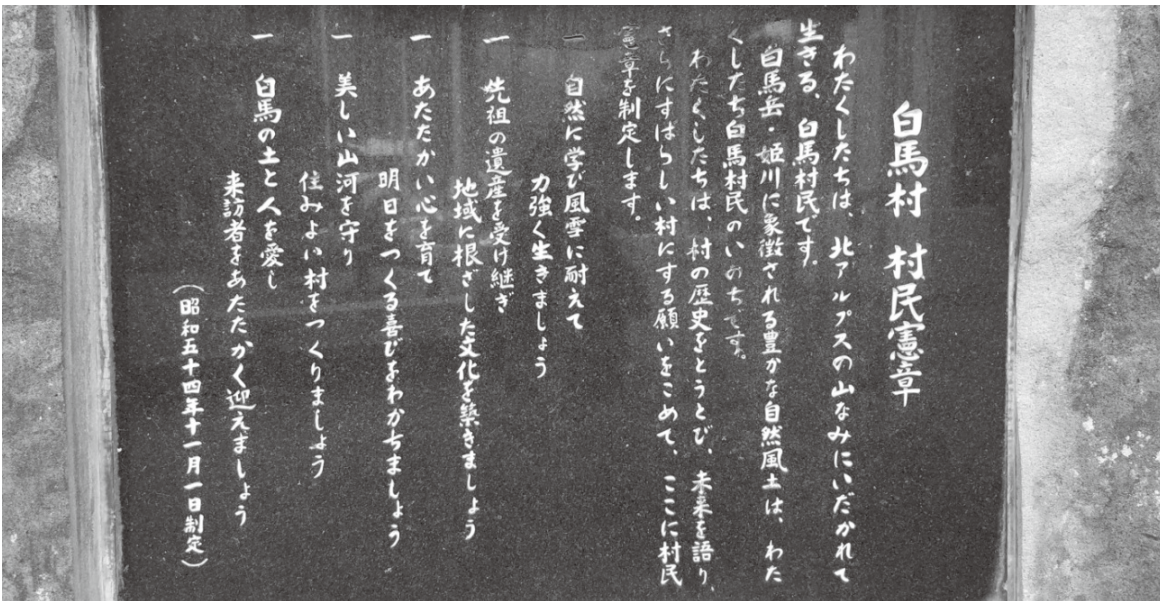 白馬村 村民憲章
わたくしたちは、北アルプスの山なみにいだかれて
生きる、白馬村民です。
白馬岳・姫川に象徴される豊かな自然風土は、わた
くしたち白馬村民のいのちです。
わたくしたちは、村の歴史をとうとび、未来を語り、
さらにすばらしい村にする願いをこめて、ここに村民
憲章を制定します。
一 自然に学び風雪に耐えて
力強く生きましょう
一 先祖の遺産を受け継ぎ
地域に根ざした文化を築きましょう
一 あたたかい心を育て
明日をつくる喜びをわかちましょう
一 美しい山河を守り
住みよい村をつくりましょう
一 白馬の土と人を愛し
来訪者をあたたかく迎えましょう
(昭和五十四年十一月一日制定)